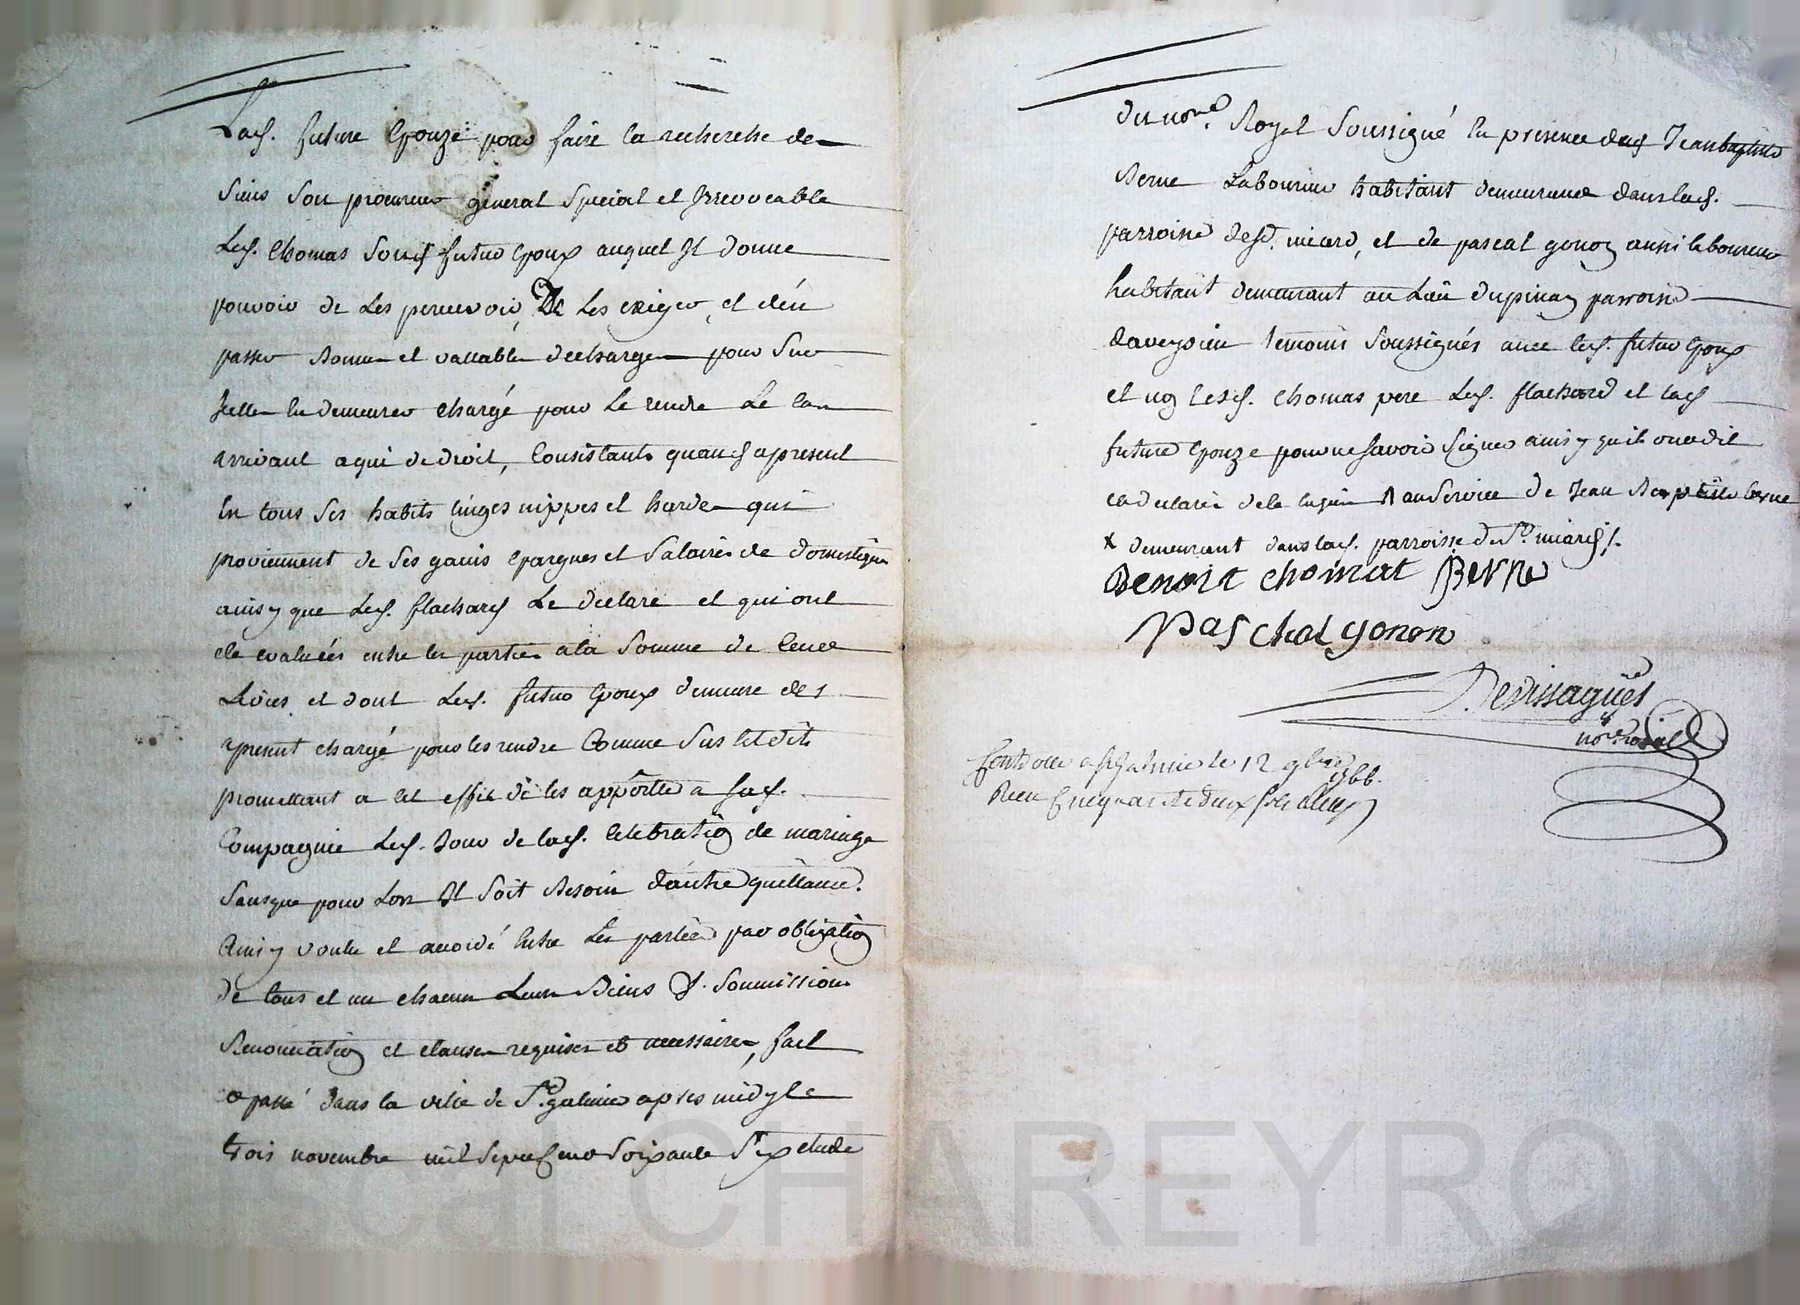 Lad. future Epouze pour faire la recherche de
biens son procureur général Special et Irrevocable
Led. Chomat son d futur Epoux auquel Il donne
pouvoir de Les percevoir, De Les exiger, et d'en
passer bonne et vallable decharge pour sur
Icelle En demeurer chargé pour Le rendre Le Cas
arrivant a qui de droit, Consistants quand apresent
En tous Ses habits linges nippes et hardes qui
proviennent de Ses gains Epargnes et Salaires de domestique
ainsy que Led. flachard Le déclare et qui ont
été evaluées entre les parties a la Somme de Cent
Livres et dont Led. futur Epoux demeure des
apresent chargé pour les rendre Comme Sus Est dit
promettant a Cet effet de les apporter a Sad.
Compagnie Led. Jour de lad. Celebration de mariage
Sans que pour Lors Il Soit Besoin d'autre quittance.
Ainsy voulu et accordé Entre Les parties par obligation
De tous et un chacun Leurs Biens &. Soumissions
Renonciation et clauses requises et necessaires, fait
et passé dans la ville de St. galmier apres midy Le
trois novembre mil Sept Cent Soixante Six etude
du nore. Royal Soussigné En présence de Jean baptiste
Berne Laboureur habitant demeurant dans lad.
parroisse de St. miard, et de pascal gonon aussi laboureur
habitant demeurant au Lieu dupinay parroisse
daveyzieu temoins Soussignés avec led. futur Epoux
et non Lesd. Chomat pere Led. flachard et lad
future Epouze pour ne Savoir Signer ainsy qu'ils ont dit
et declaré de ce enquis au Service de Jean Baptiste berne
x demeurant dans lad. parroisse de St. miard
Benoit chomat Berne
Paschal gonon
Devissaguet
nore. royal
Controllé a St Galmier le 12 9bre 1766.
Recu Cinquante deux sols
Pascal CHAREYRON